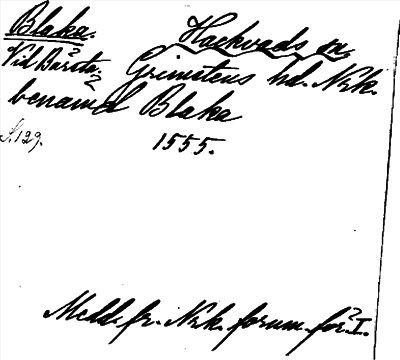 Blaka. Hackvads sn
Vid Barsta. Grimstens hd. Nrk.
benämd Blaka
S. 129. 1555.
Medd. fr. Nrk. fornm. för. I.